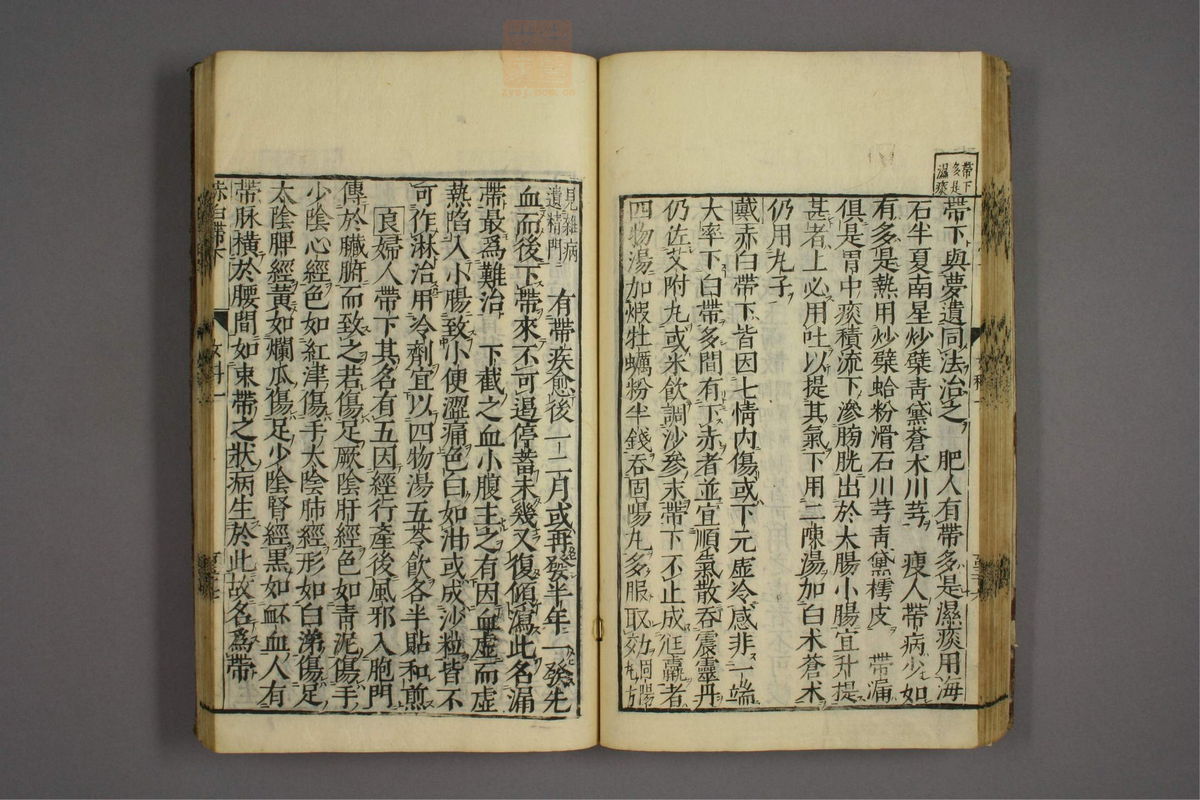 帶下
多是
濕痰
帶下與夢遺同法治之 肥人有帶多是濕痰用海
石半夏南星炒蘗靑黛蒼朮川芎 瘦人帶病少如
有多是熱用炒蘗蛤粉滑石川芎靑黛樗皮 帶漏
俱是胃中痰積流下滲膀胱出於大腸小腸宜升提
甚者上必用吐以提其氣下用二陳湯加白朮蒼朮
仍用丸子
戴赤白帶下皆因七情內傷或下元虛冷感非一端
大率下白帶多間有下赤者並宜順氣散吞震靈丹
仍佐艾附丸或米飮調沙參末帶下不止成尫羸者
四物湯加煆牡蠣粉半錢吞固陽丸多服取効固陽丸方
見雜病
遺精門
有帶疾愈後一二月或再發半年一發先
血而後下帶來不可遏停蓄未幾又復傾瀉此名漏
帶最爲難治 下截之血小腹主之有因血虛而虛
熱陷入小腸致小便澀痛色白如泔或成沙粒皆不
可作淋治用冷劑宜以四物湯五苓飮各半貼和煎
良婦人帶下其名有五因經行產後風邪入胞門
傳於臟腑而致之若傷足厥陰肝經色如靑泥傷手
少陰心經色如紅津傷手太陰肺經形如白涕傷足
太陰脾經黃如爛瓜傷足少陰腎經黑如衃血人有
帶脉橫於腰間如束帶之狀病生於此故名爲帶
赤白帶下
女科一